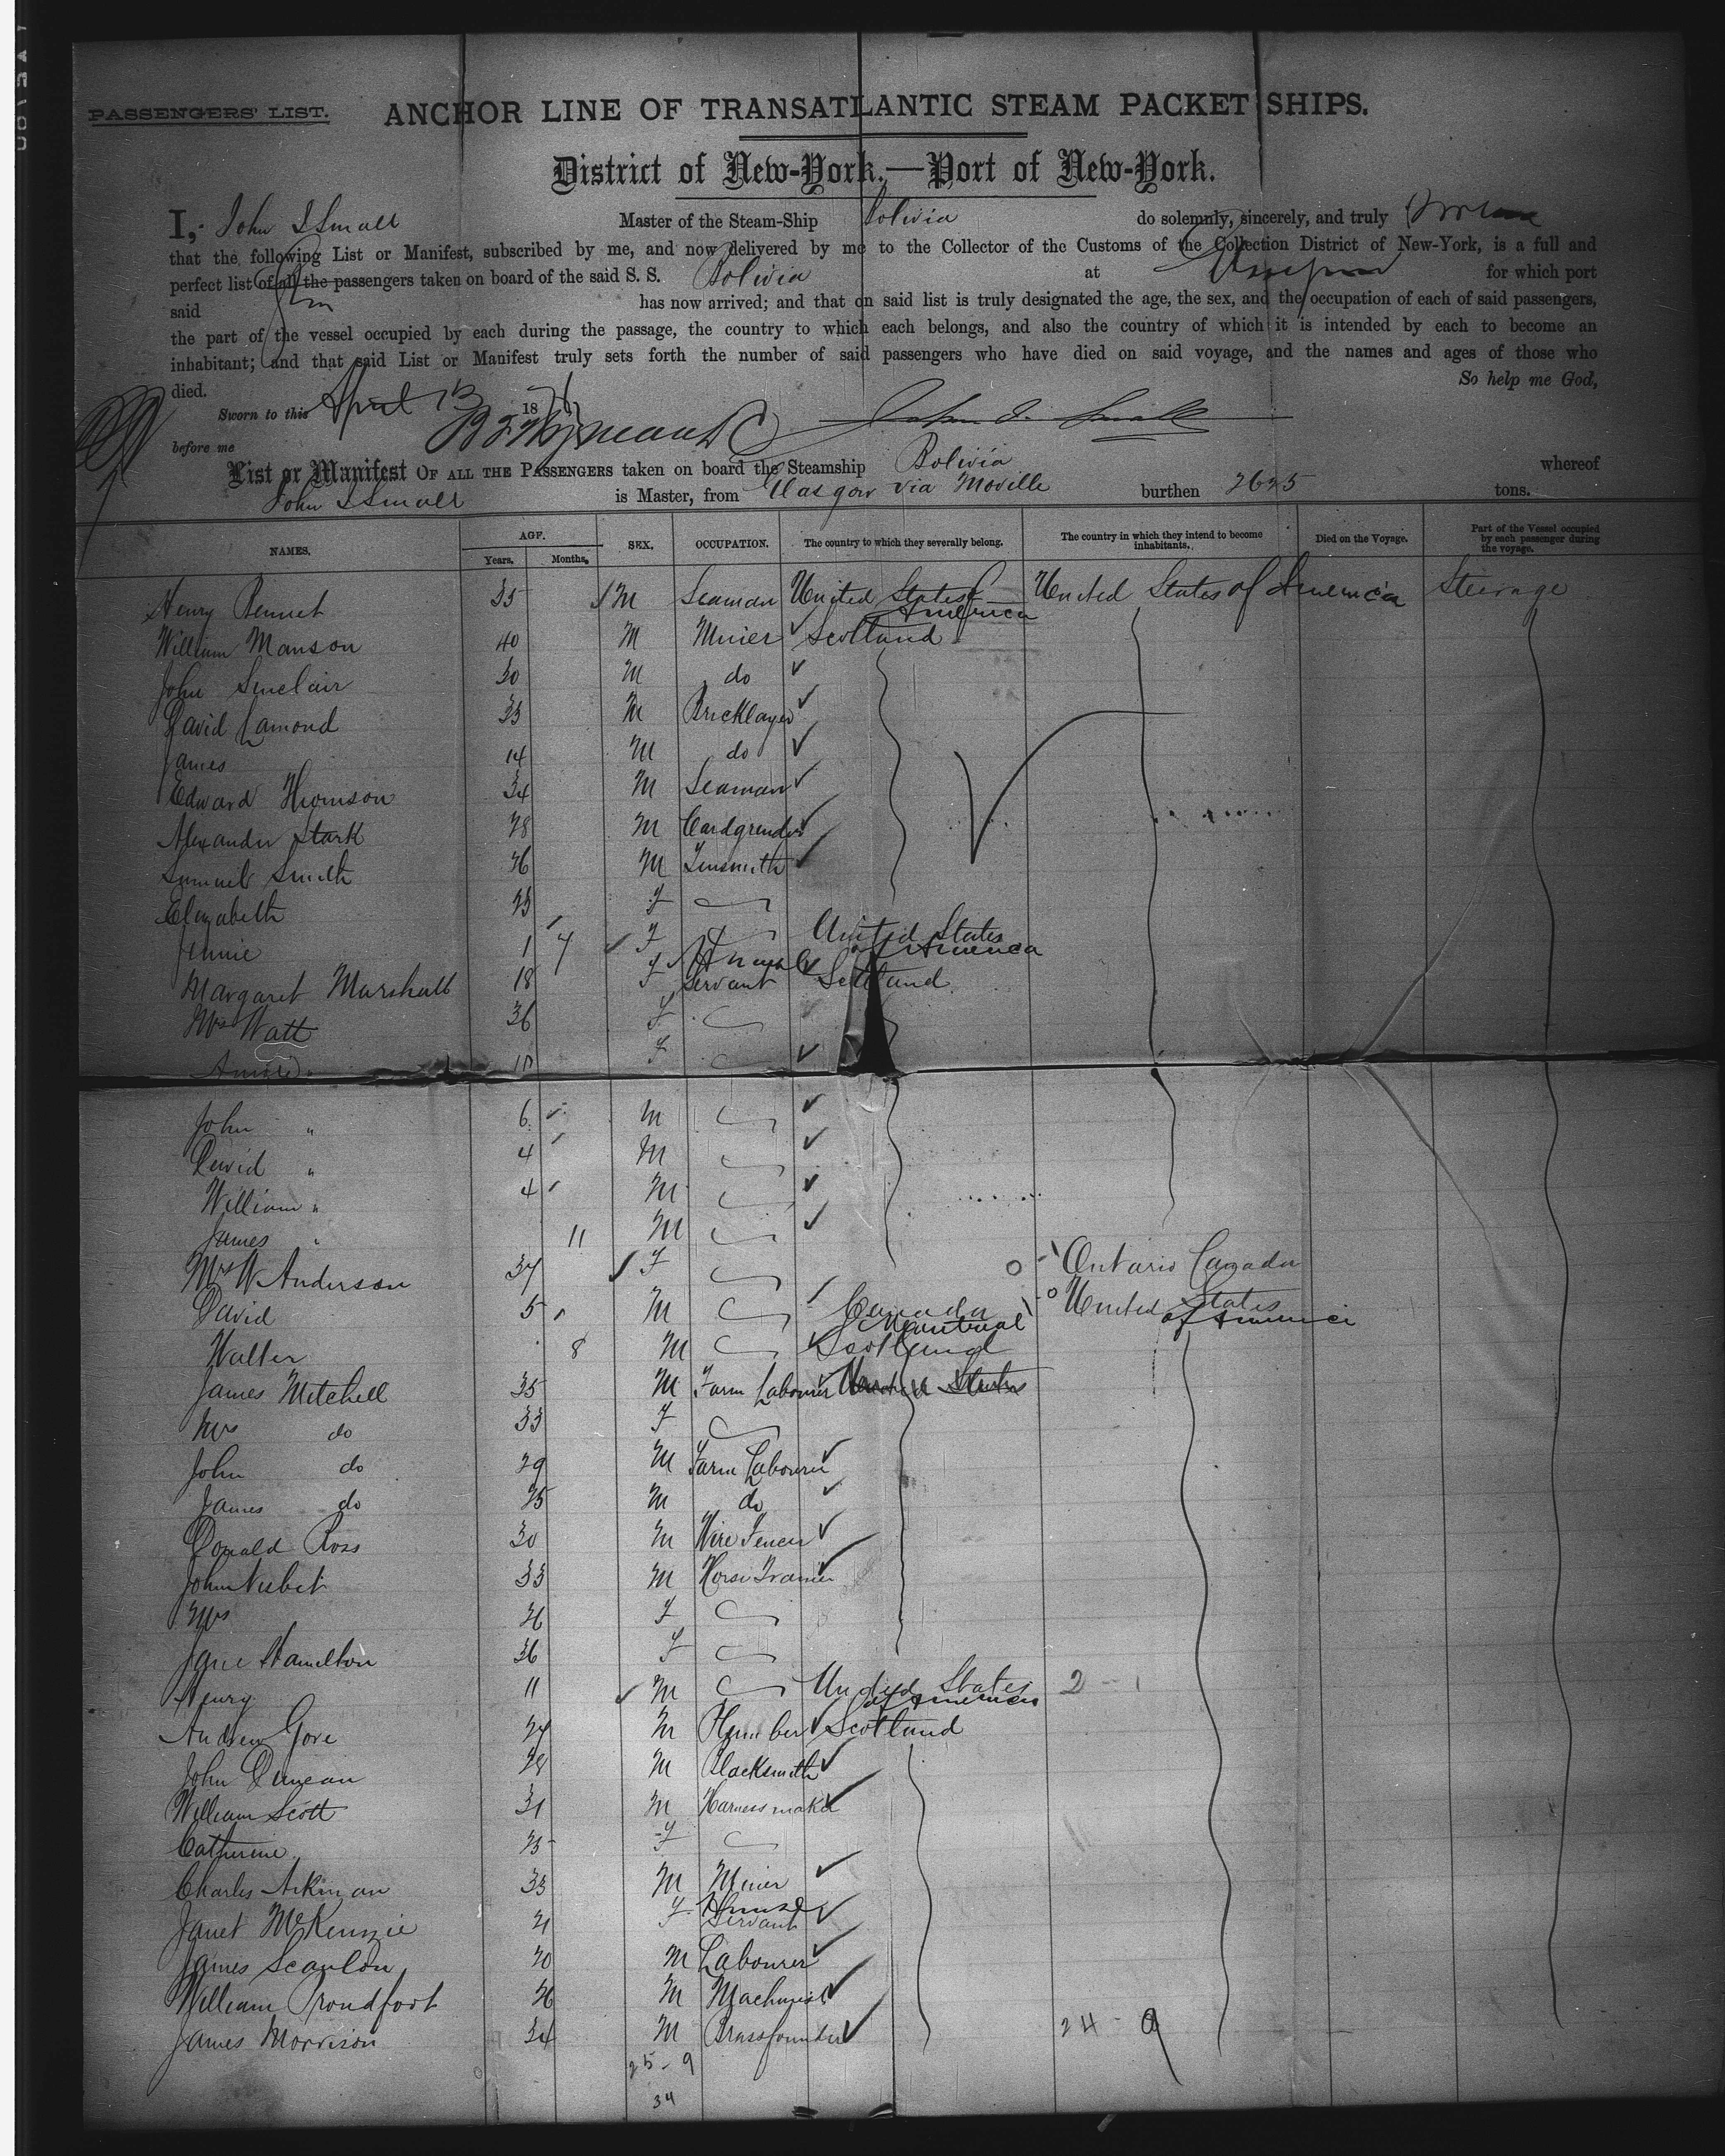 PASSENGERS' LIST. ANCHOR LINE OF TRANSATLANTIC STEAM PACKET SHIPS.
District of New-York.—Port of New-York.
I, John S Small Master of the Steam-Ship Bolivia do solemnly, sincerely, and truly
that the following List or Manifest, subscribed by me, and now delivered by me to the Collector of the Customs of the Collection District of New-York, is a full and
perfect list of all the passengers taken on board of the said S. S. Bolivia at for which port
said has now arrived; and that on said list is truly designated the age, the sex, and the occupation of each of said passengers,
the part of the vessel occupied by each during the passage, the country to which each belongs, and also the country of which it is intended by each to become an
inhabitant; and that said List or Manifest truly sets forth the number of said passengers who have died on said voyage, and the names and ages of those who
died. So help me God,
Sworn to this April 13 18 John S. Small
before me
List or Manifest OF ALL THE PASSENGERS taken on board the Steamship Bolivia whereof
John S Small is Master, from Glasgow via Moville burthen 2625 tons.
NAMES. AGE. Years. Months. SEX. OCCUPATION. The country to which they severally belong. The country in which they intend to become inhabitants. Died on the Voyage. Part of the Vessel occupied by each passenger during the voyage.
Henry Bennet 35 M Seaman United States of America United States of America Steerage
William Manson 40 M Miner Scotland
John Sinclair 30 M do
David Lamond 33 M Bricklayer
James 14 M do
Edward Thomson 34 M Seaman
Alexander Stark 28 M Cardgrinder
Samuel Smith 26 M Tinsmith
Elizabeth 23 F
Jennie 1 7 F United States of America
Margaret Marshall 18 F Servant Scotland
Mrs Watt 36 F
Annie " F
John " 6 M
David " 4 M
William " 4 M
James " 11 M
Mrs W Anderson 37 F Ontario Canada
David 5 M Canada Montreal United States of America
Walter 8 M Scotland
James Mitchell 35 M Farm Labourer United States
Mrs do 33 F
John do 29 M Farm Labourer
James do 25 M do
Donald Ross 30 M Wire Fencer
John Nisbet 33 M Horse Trainer
Mrs 26 F
Jane Hamilton 36 F
Henry 11 M United States of America 2 - 1
Andrew Gore 27 M Plumber Scotland
John Duncan 28 M Blacksmith
William Scott 31 M Harness maker
Catherine 25 F
Charles Aikman 33 M Miner
Janet McKenzie 21 F House Servant
James Scanlon 20 M Labourer
William Proudfoot 26 M Machinist
James Morrison 34 M Brassfounder 24 - 9
25 - 9
34